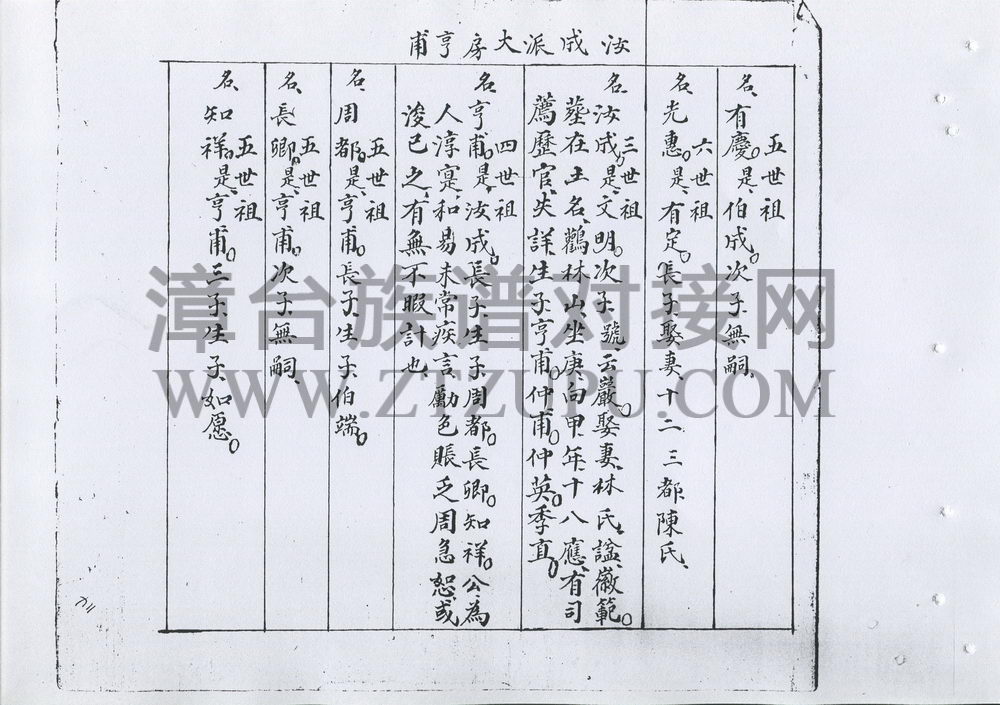 汝成派大房亨甫
五世祖
名、有慶。是、伯成。次子、無嗣、
六世祖
名、光惠。是、有定。長子、娶妻、十二三都、陳氏、
三世祖
名、汝成。是、文明。次子、號、云巖。娶妻、林氏、諡、徽範。
葬在土名、鸛林山、坐庚、向甲、年十八、應、有司
薦歷官、失詳、生子、亨甫。仲甫。仲英。季直。
四世祖
名、亨甫。是、汝成。長子、生子、周都。長卿。知祥。公為
人淳寔、和易、未常疾言、勵色、賬乏周急、恕、或
浚已之、有無不暇計也、
五世祖
名、周都。是、亨甫。長子、生子、伯端。
五世祖
名、長卿。是、亨甫。次子、無嗣、
五世祖
名、知祥。是、亨甫。三子、生子、如愿。
漳台族谱对接网
WWW.ZTZUPU.COM